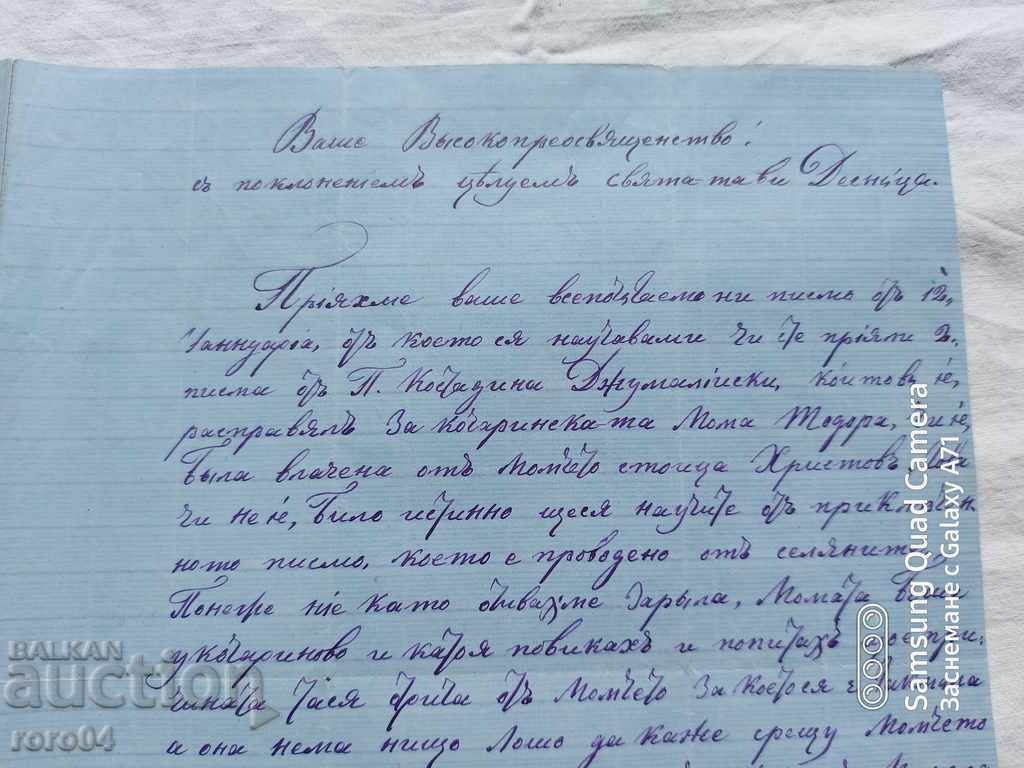 Ваше Высокопреосвященство!
съ поклоненіемъ цѣлуемъ святата ви Десница.
Пріяхме ваше всепочитаемо ни писмо отъ 12.
Іаннуаріа, отъ което ся научавами чи сте пріяли 2.
писма отъ П. Костадина Джумалійски, които
расправятъ за кочаринската Мома Тодора, чи іе,
была влачена отъ Момчето стоица Христовъ,
чи не іе, било истинно щеся научите отъ приключен
ното писмо, което е проводено отъ селянит
Понеже ніе като бывахме Зарыла, Момата
у кочариново и като я повикахъ и попитахъ
отъ Момчето за което ся
а она нема нищо лошо да каже срещу Момчето
BALKAN
auction
roro04
Samsung Quad Camera
Заснемане с Galaxy A71